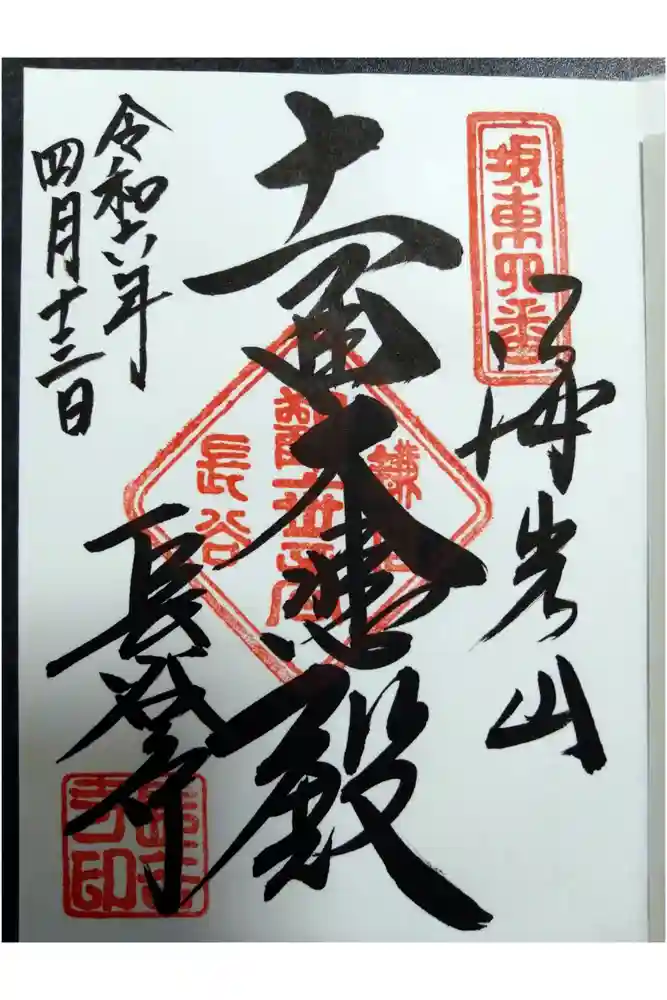 坂東四番
海光山
十一面大悲殿
鎌倉
長谷
長谷寺
長谷
寺印
令和六年
四月十三日